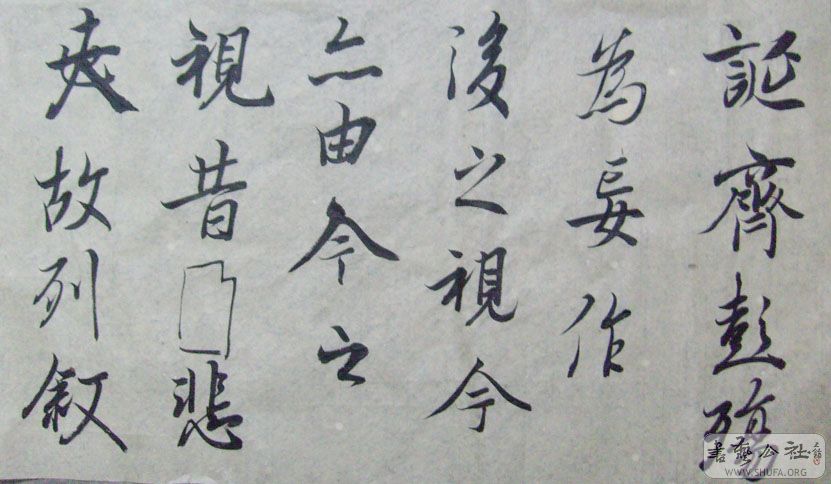 誕齊彭殤
為妄作
後之視今
亦由今之
視昔悲
夫故列叙
書藝公社
WWW.SHUFA.ORG